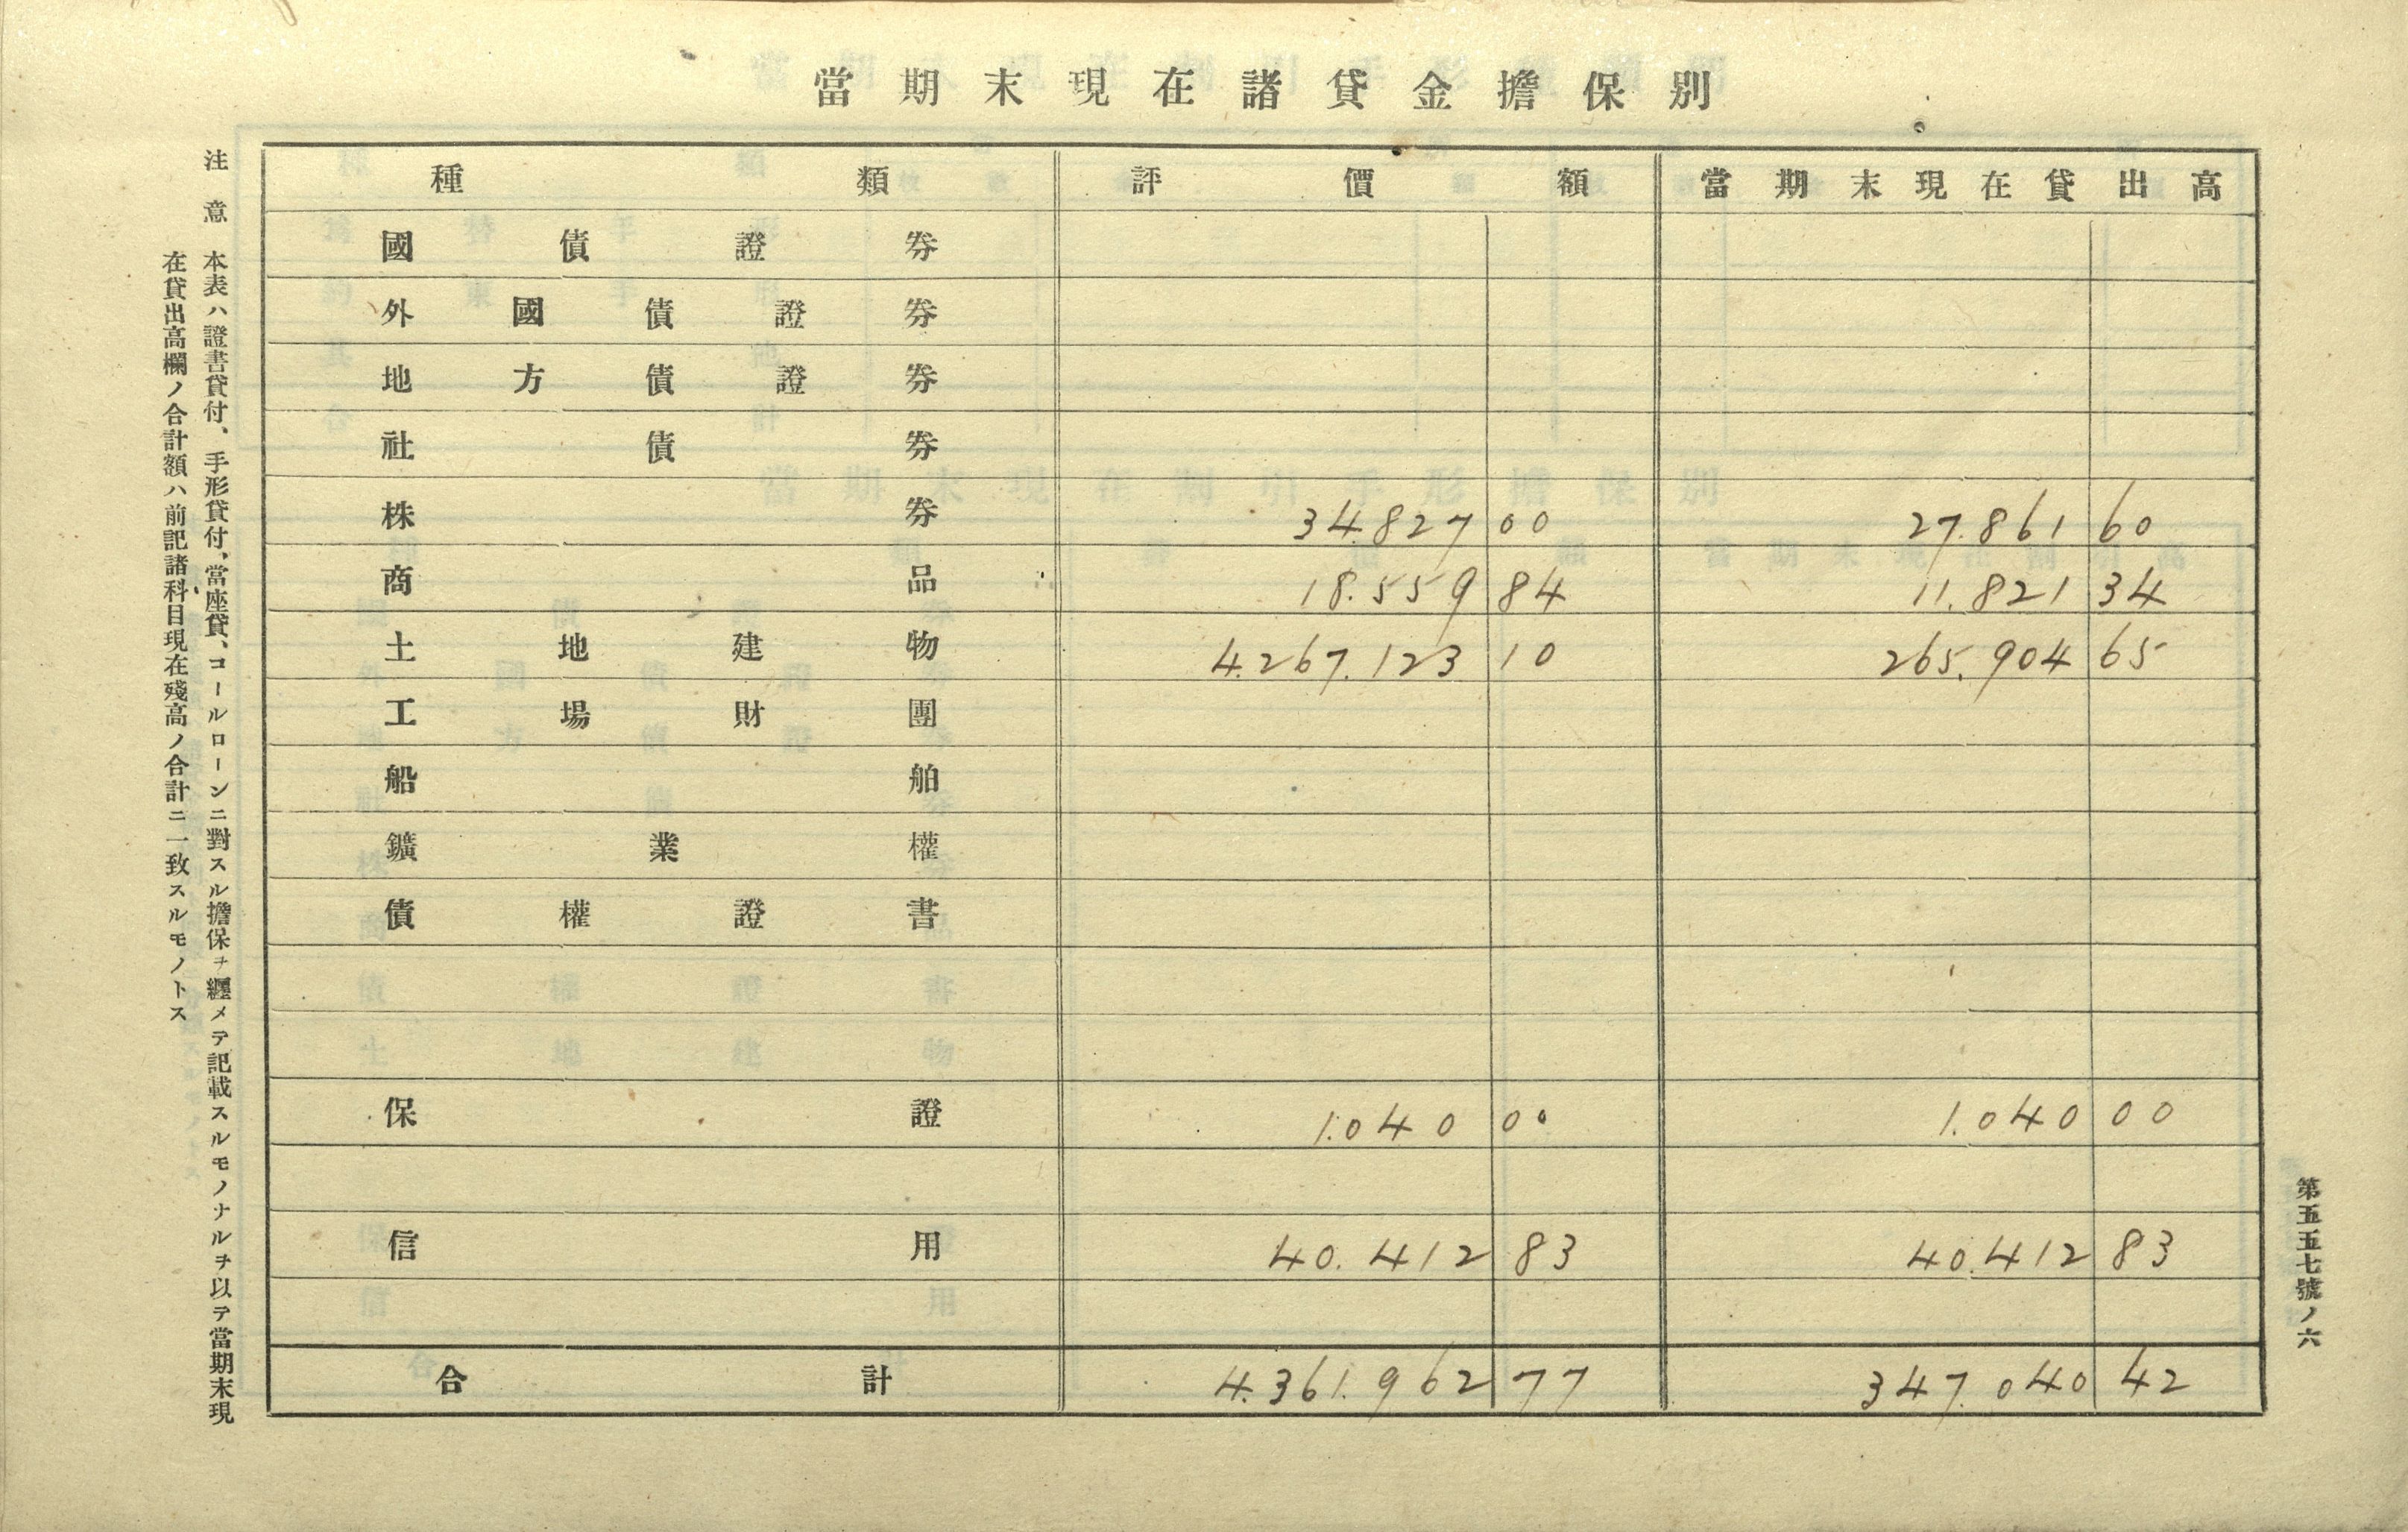 當期末現在諸貸金擔保別
種類 評價額 當期末現在貸出高
國債證券
外國債證券
地方債證券
社債券
株券 34.827 00 27.861 60
商品 18.559 84 11.821 34
土地建物 4.267.123 10 265.904 65
工場財團
船舶
鑛業權
債權證書
保證 1.040 00 1.040 00
信用 40.412 83 40.412 83
合計 4.361.962 77 347.040 42
注意 本表ハ證書貸付、手形貸付、當座貸、コールローンニ對スル擔保ヲ纒メテ記載スルモノナルヲ以テ當期末現
在貸出高欄ノ合計額ハ前記諸科目現在殘高ノ合計ニ一致スルモノトス
第五五七號ノ六